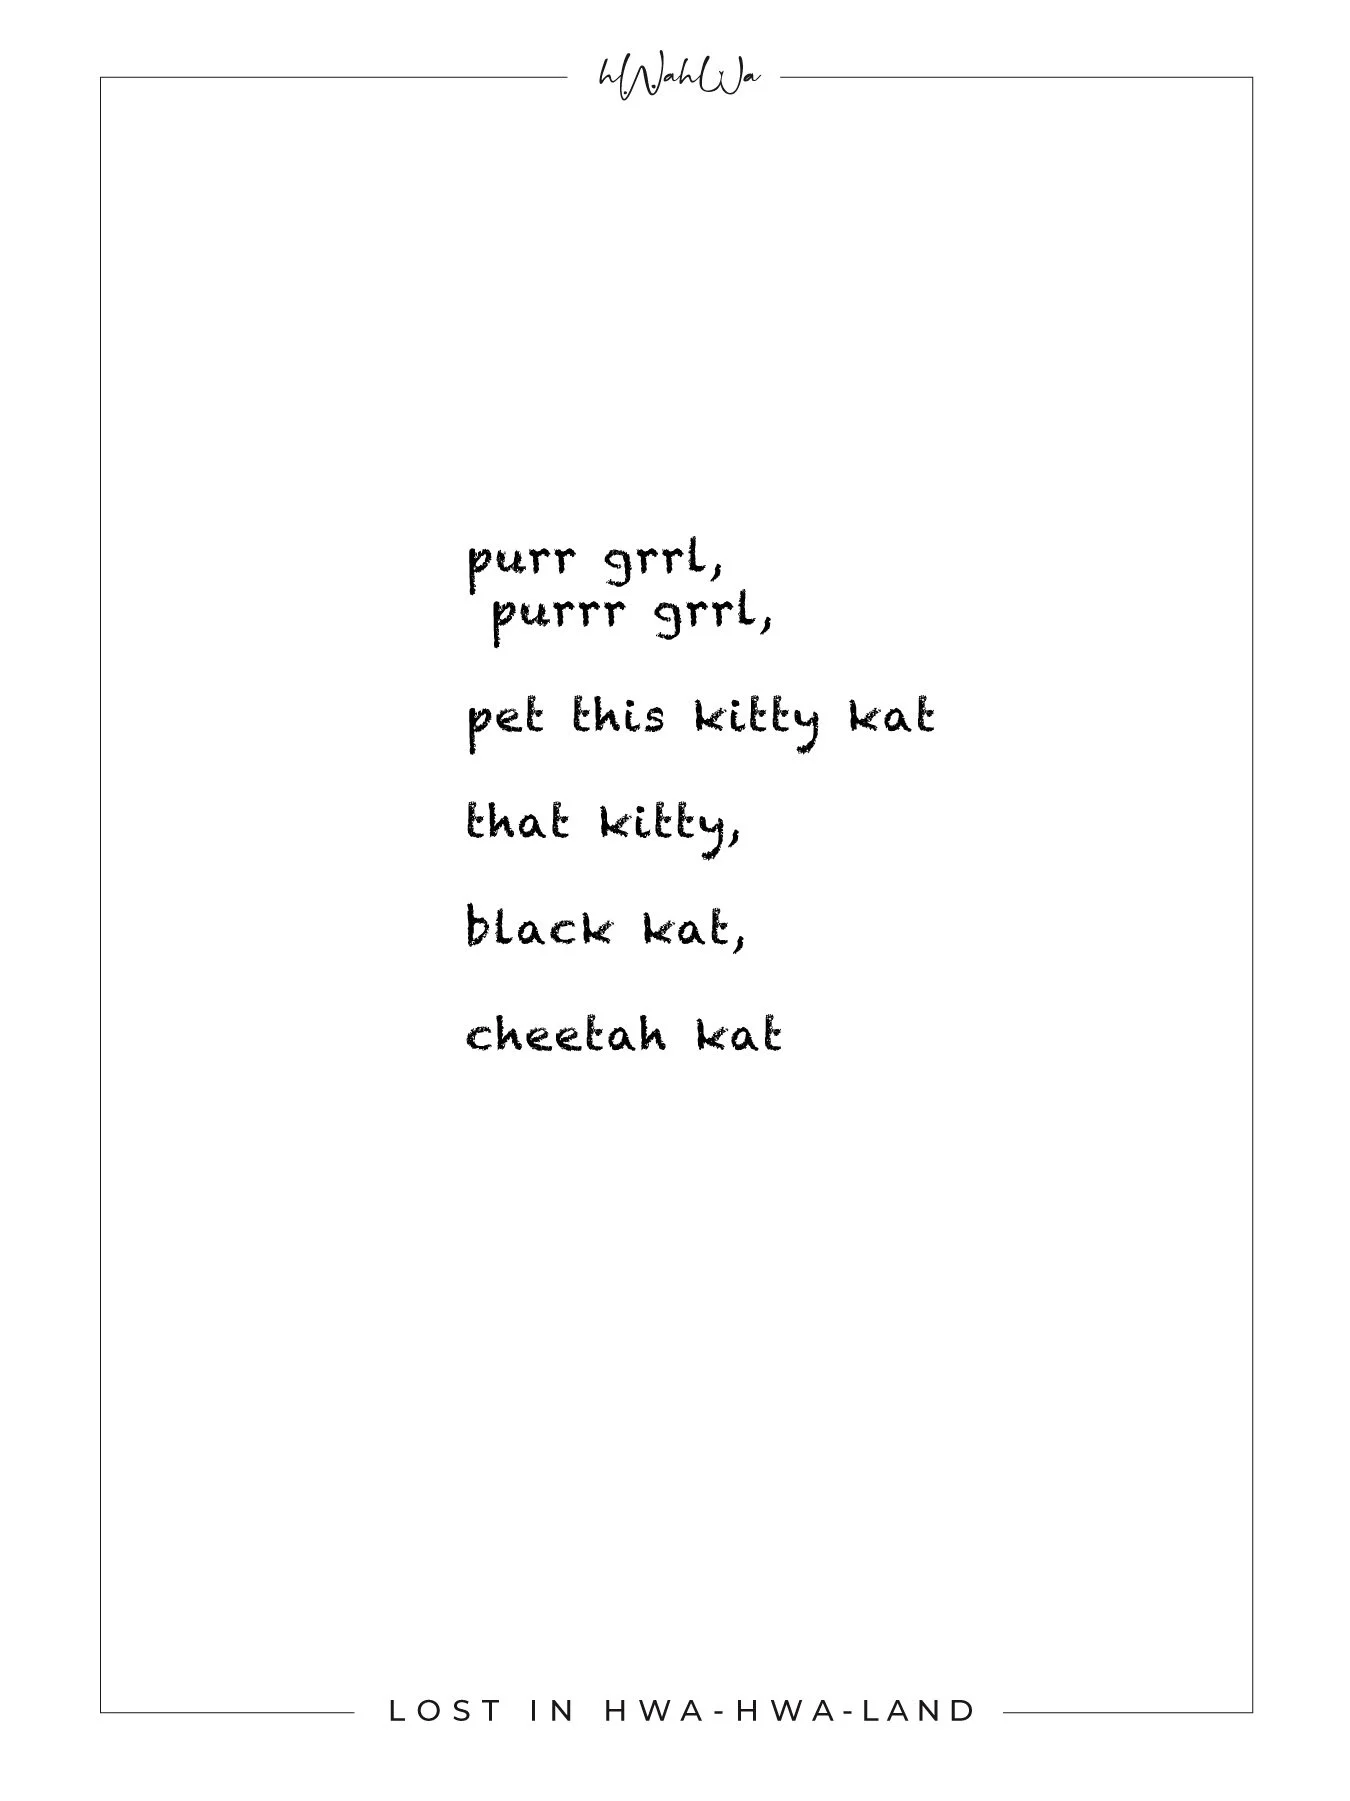 hWahWa
purr grrl,
purrr grrl,
pet this kitty kat
that kitty,
black kat,
cheetah kat
LOST IN HWA-HWA-LAND